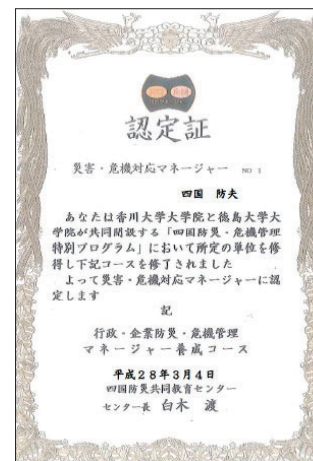 認定証
災害・危機対応マネージャー NO 1
四国 防夫
あなたは香川大学大学院と徳島大学大
学院が共同開設する「四国防災・危機管理
特別プログラム」において所定の単位を修
得し下記コースを修了されました
よって災害・危機対応マネージャーに認
定します
記
行政・企業防災・危機管理
マネージャー養成コース
平成28年3月4日
四国防災共同教育センター
センター長 白木 渡